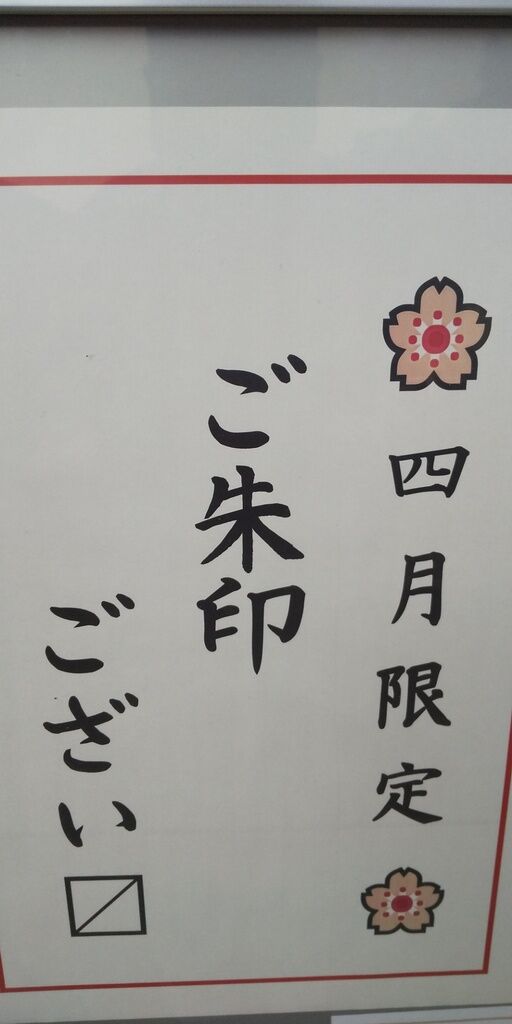 四月限定
ご朱印
ござい〼